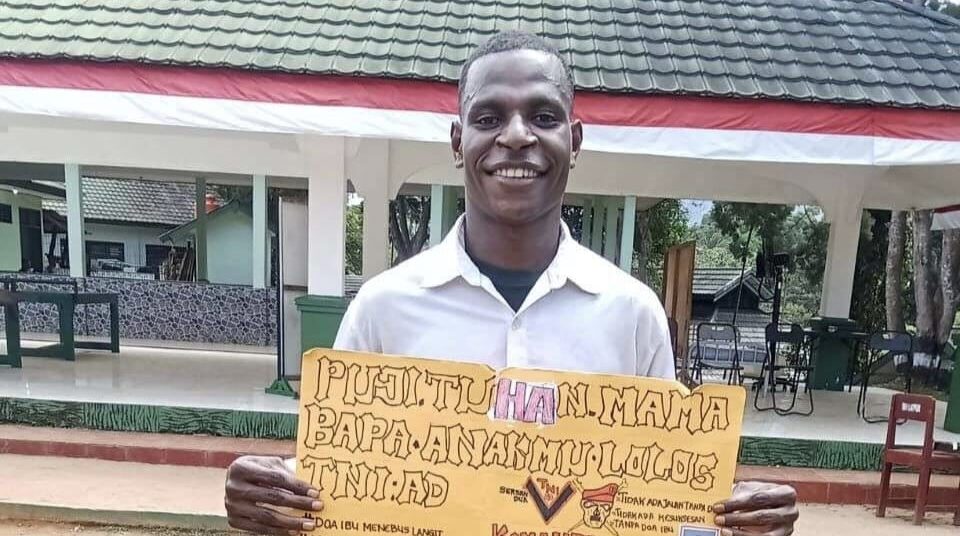 PUJI.TUHAN.MAMA
BAPA.ANAKMU.LOLOS
TNI.AD
SERSAN
DUA
TNI
TIDAK ADA JALAN TANPA
TIDAK ADA KESUKSESAN
TANPA DOA IBU
#DOA IBU MENEBUS LANGIT